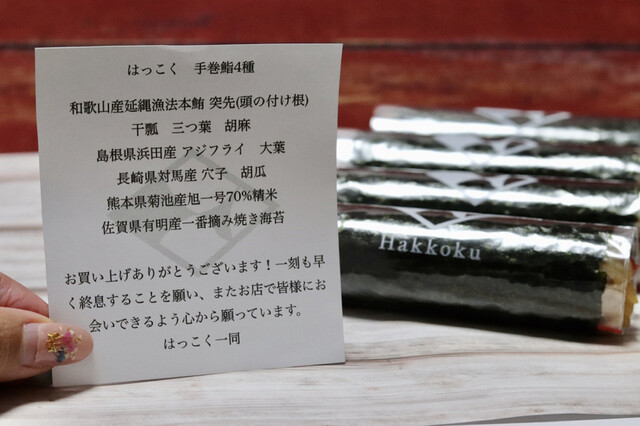 はっこく　手巻鮨4種
和歌山産延縄漁法本鮪 突先(頭の付け根)
干瓢　三つ葉　胡麻
島根県浜田産 アジフライ　大葉
長崎県対馬産 穴子　胡瓜
熊本県菊池産旭一号70%精米
佐賀県有明産一番摘み焼き海苔
お買い上げありがとうございます！一刻も早
く終息することを願い、またお店で皆様にお
会いできるよう心から願っています。
はっこく一同
Hakkoku